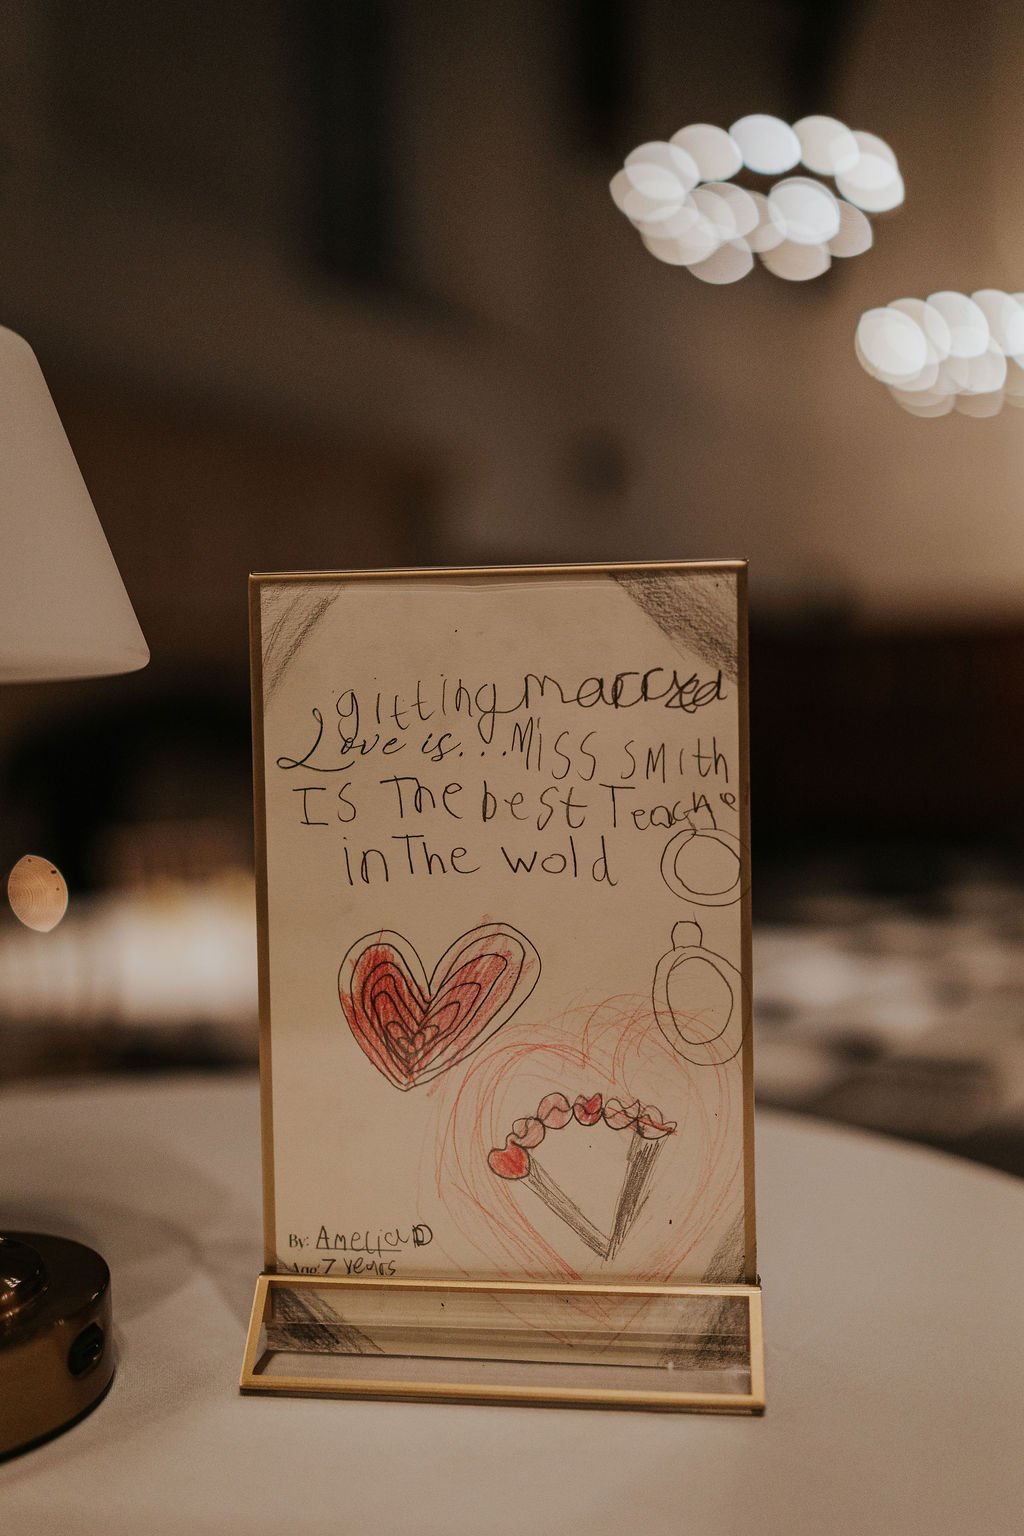 gitting married
Love is... Miss smith
IS The best Teache
in The wold
By: Amelia D
Age: 7 years